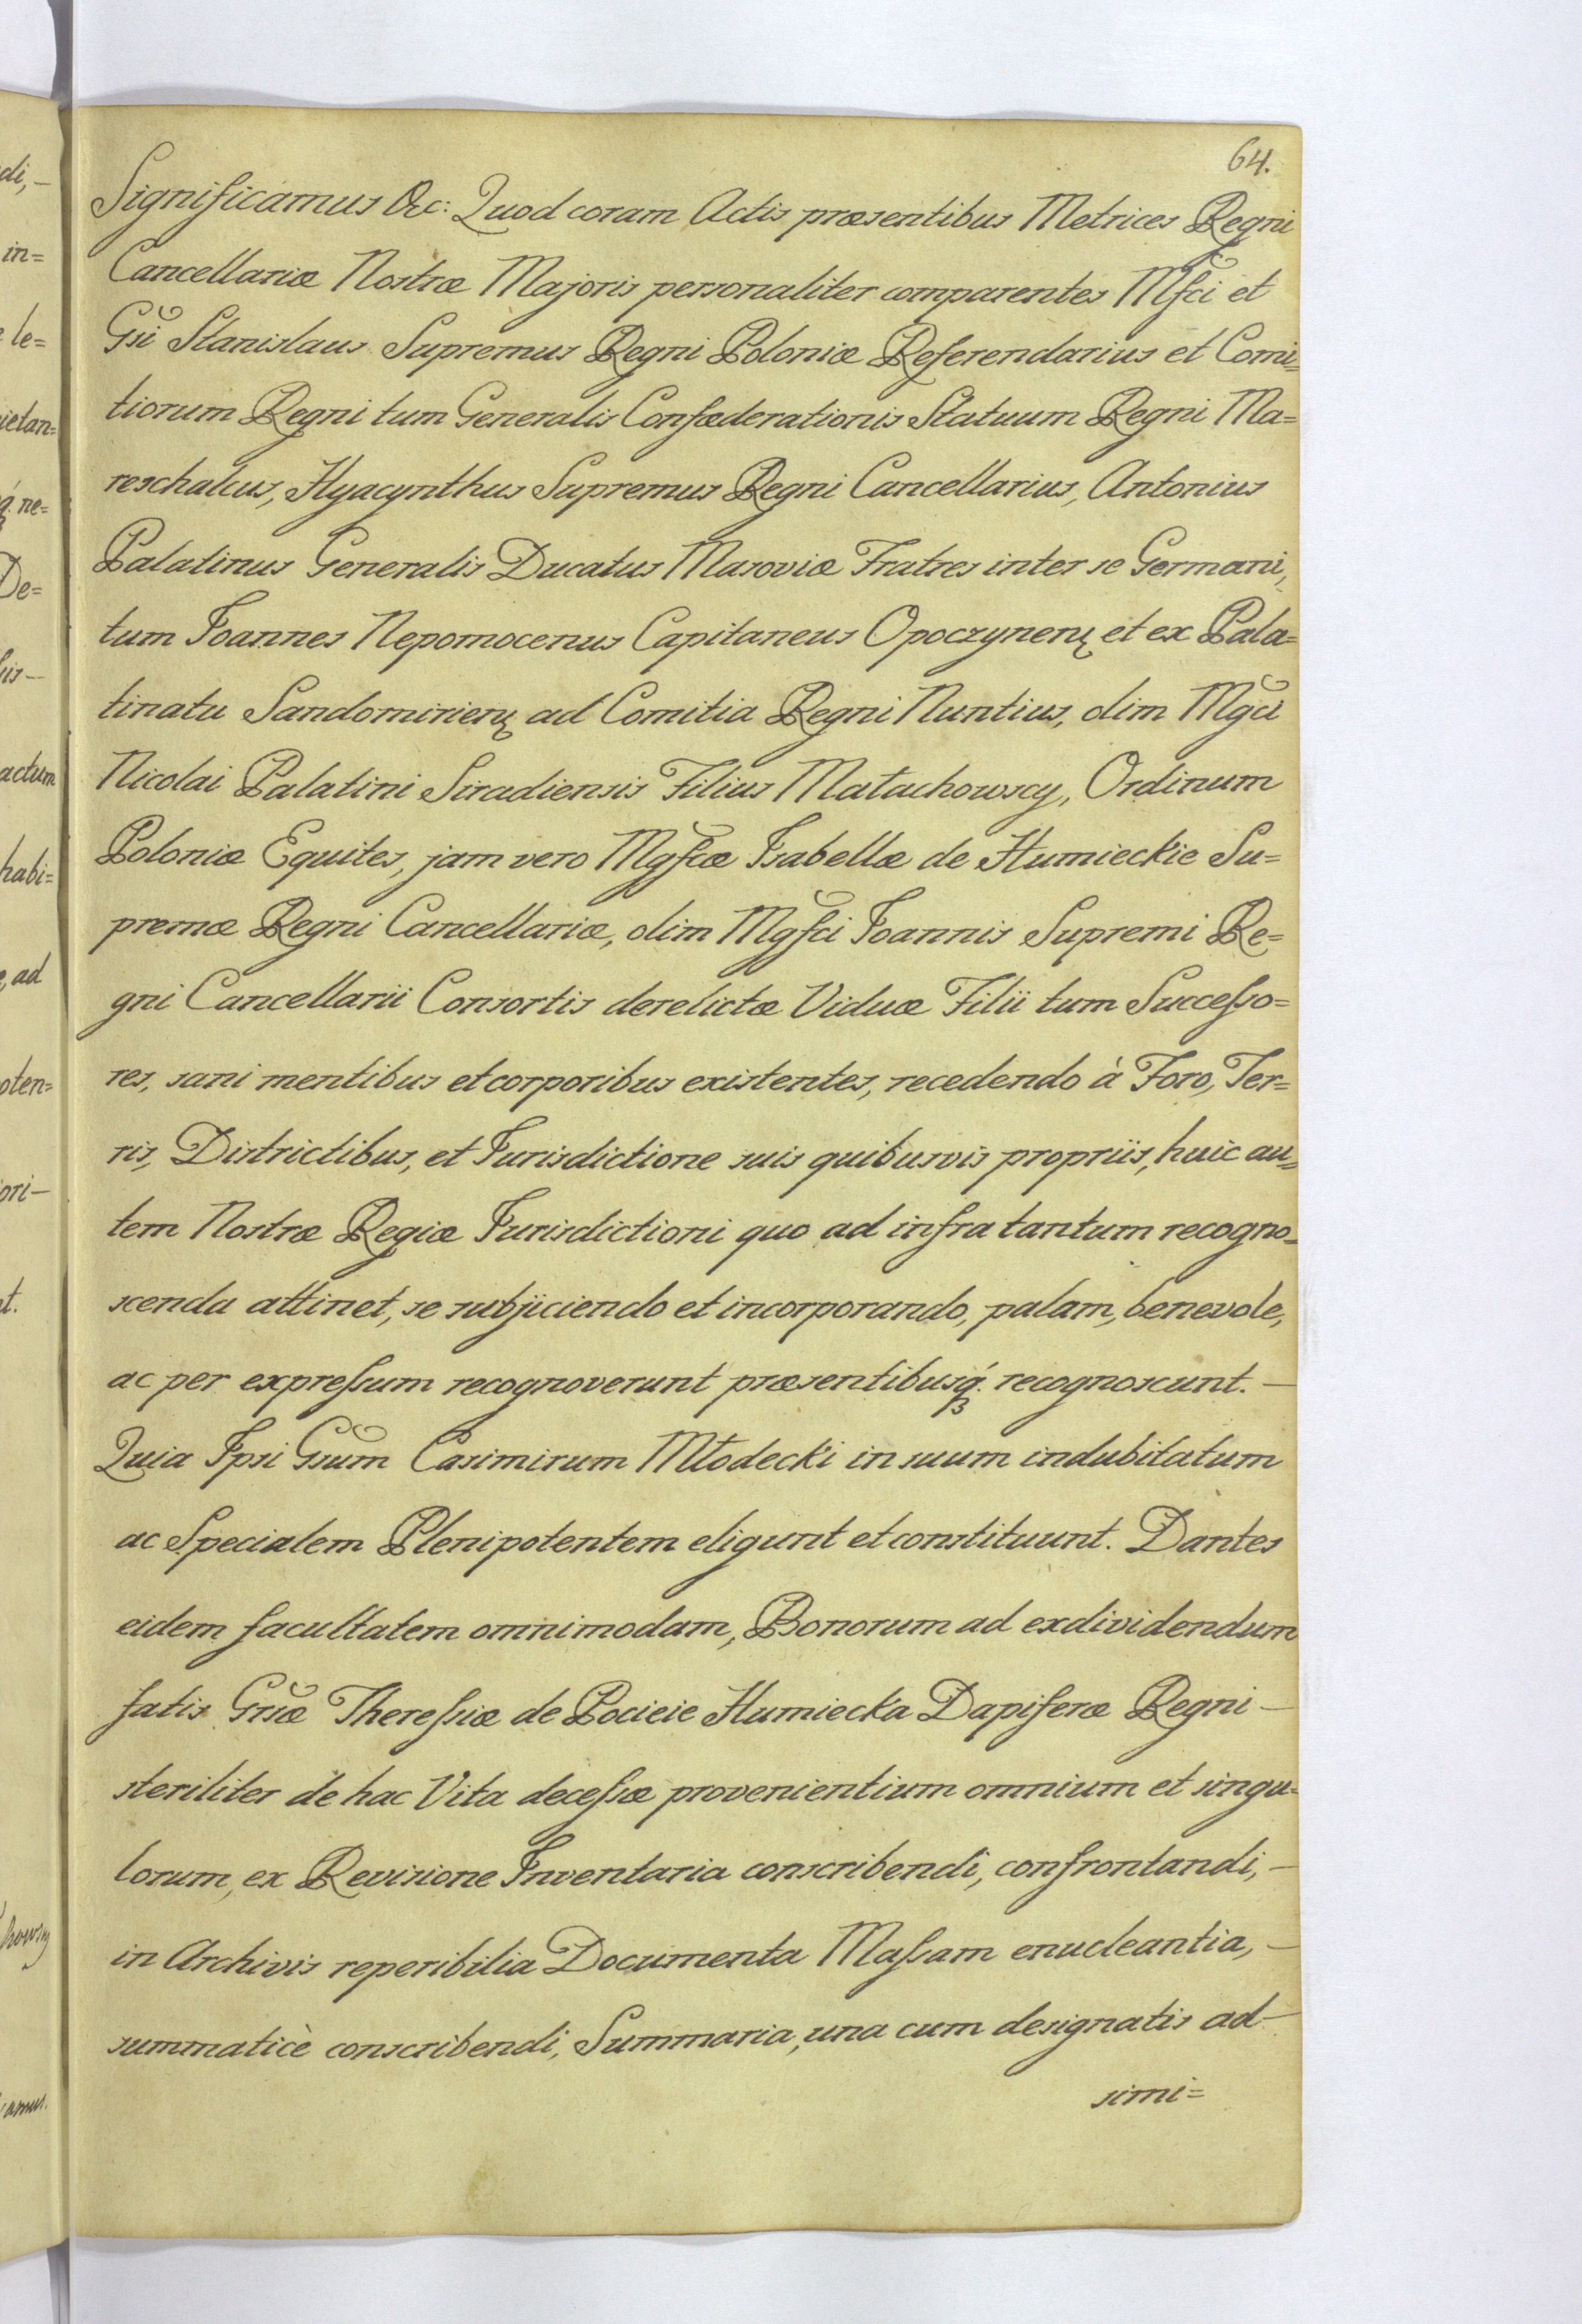 64.
Significamus &c: Quod coram Actis præsentibus Metrices Regni
Cancellariæ Nostræ Majoris personaliter comparentes Mfci et
Gsi Stanislaus Supremus Regni Poloniæ Referendarius et Comi=
tiorum Regni tum Generalis Confæderationis Statuum Regni Ma=
reschalcus, Hyacynthus Supremus Regni Cancellarius, Antonius
Palatinus Generalis Ducatus Masoviæ Fratres inter se Germani,
tum Joannes Nepomocenus Capitaneus Opoczynen: et ex Pala=
tinatu Sandomirien: ad Comitia Regni Nuntius, olim Mgci
Nicolai Palatini Siradiensis Filius Małachowscy, Ordinum
Poloniæ Equites, jam vero Mgfcæ Isabellæ de Humieckie Su=
premæ Regni Cancellariæ, olim Mgfci Joannis Supremi Re=
gni Cancellarii Consortis derelictæ Viduæ Filii tum Successo=
res, sani mentibus et corporibus existentes, recedendo à Foro, Ter=
ris, Districtibus, et Jurisdictione suis quibusvis propriis, huic au=
tem Nostræ Regiæ Jurisdictioni quo ad infra tantum recogno=
scenda attinet, se subjiciendo et incorporando, palam, benevole,
ac per expressum recognoverunt præsentibusq́ recognoscunt. —
Quia Ipsi Gsum Casimirum Młodecki in suum indubitatum
ac Specialem Plenipotentem eligunt et constituunt. Dantes
eidem facultatem omnimodam, Bonorum ad exdividendum
fatis Gsæ Theressiæ de Pocieie Humiecka Dapiferæ Regni —
steriliter de hac Vita decessæ provenientium omnium et singu=
lorum, ex Revisione Inventaria conscribendi, confrontandi, —
in Archivis reperibilia Documenta Massam enucleantia, —
summaticè conscribendi, Summaria, una cum designatis ad —
simi=
di, —
in=
le=
ietan=
ne=
De=
actum
habi=
ad
oten=
ori —
t.